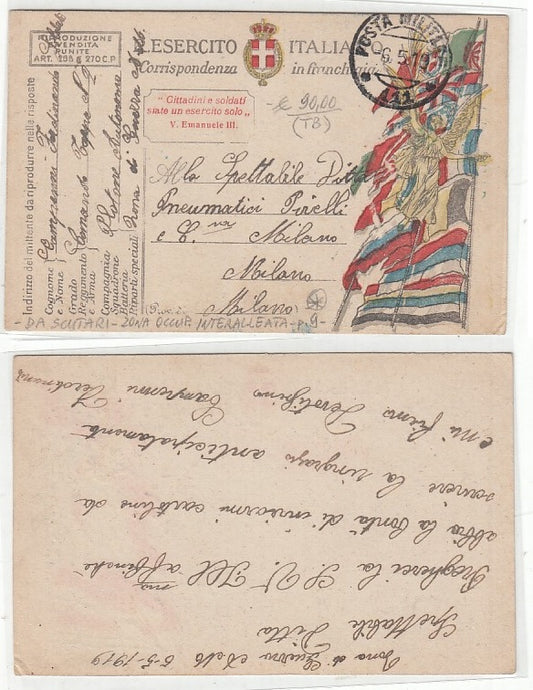 RIPRODUZIONE
E VENDITA
PUNITE
ART. 296 e 270 C.P.
ESERCITO ITALIANO
Corrispondenza in franchigia
POSTA MILITARE
6.5.19
"Cittadini e soldati
siate un esercito solo"
V. Emanuele III.
€ 90,00
(TB)
Indirizzo del mittente da riprodurre nelle risposte
Cognome e Nome
Ferdinando
Grado
Reggimento e Arma
Comando
Compagnia
Squadrone
Batteria
Reparti speciali
Zona di Guerra
Alla Spettabile Ditta
Pneumatici Pirelli
e C.
Milano
Milano
Milano
- DA SCUTARI - ZONA OCCUP. INTERALLEATA - P. 9 -
Zona di
Guerra 5-5-1919
Spettabile Ditta
Pregherei la S. V. Ill.ma affinchè
abbia la bontà di inviarmi cartoline da
scrivere la ringrazio anticipatamente
e mi firmo Devotissimo
Ferdinando